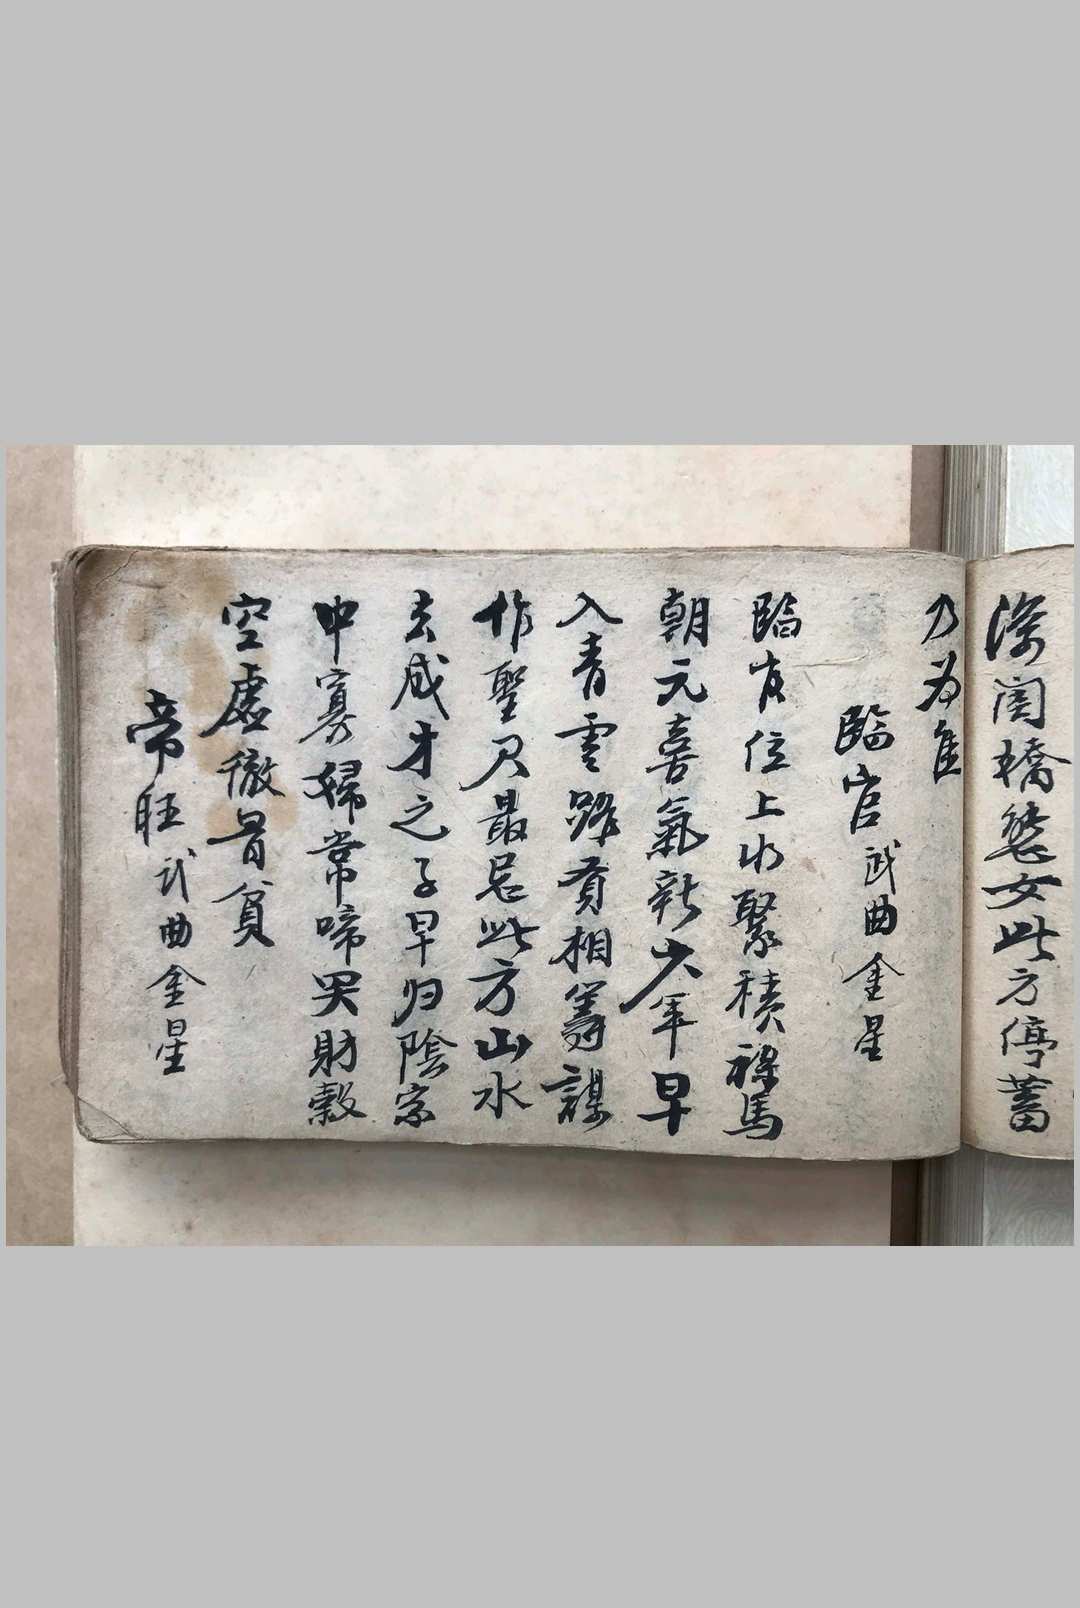 深闺娇態女此方停蓄
乃为佳
臨官武曲金星
臨官位上水聚積祿馬
朝元喜氣新少年早
入青雲路賢相籌謀
作聖君最忌此方山水
去成才之子早归陰家
中寡婦常啼哭財穀
空虛徹骨貧
帝旺武曲金星